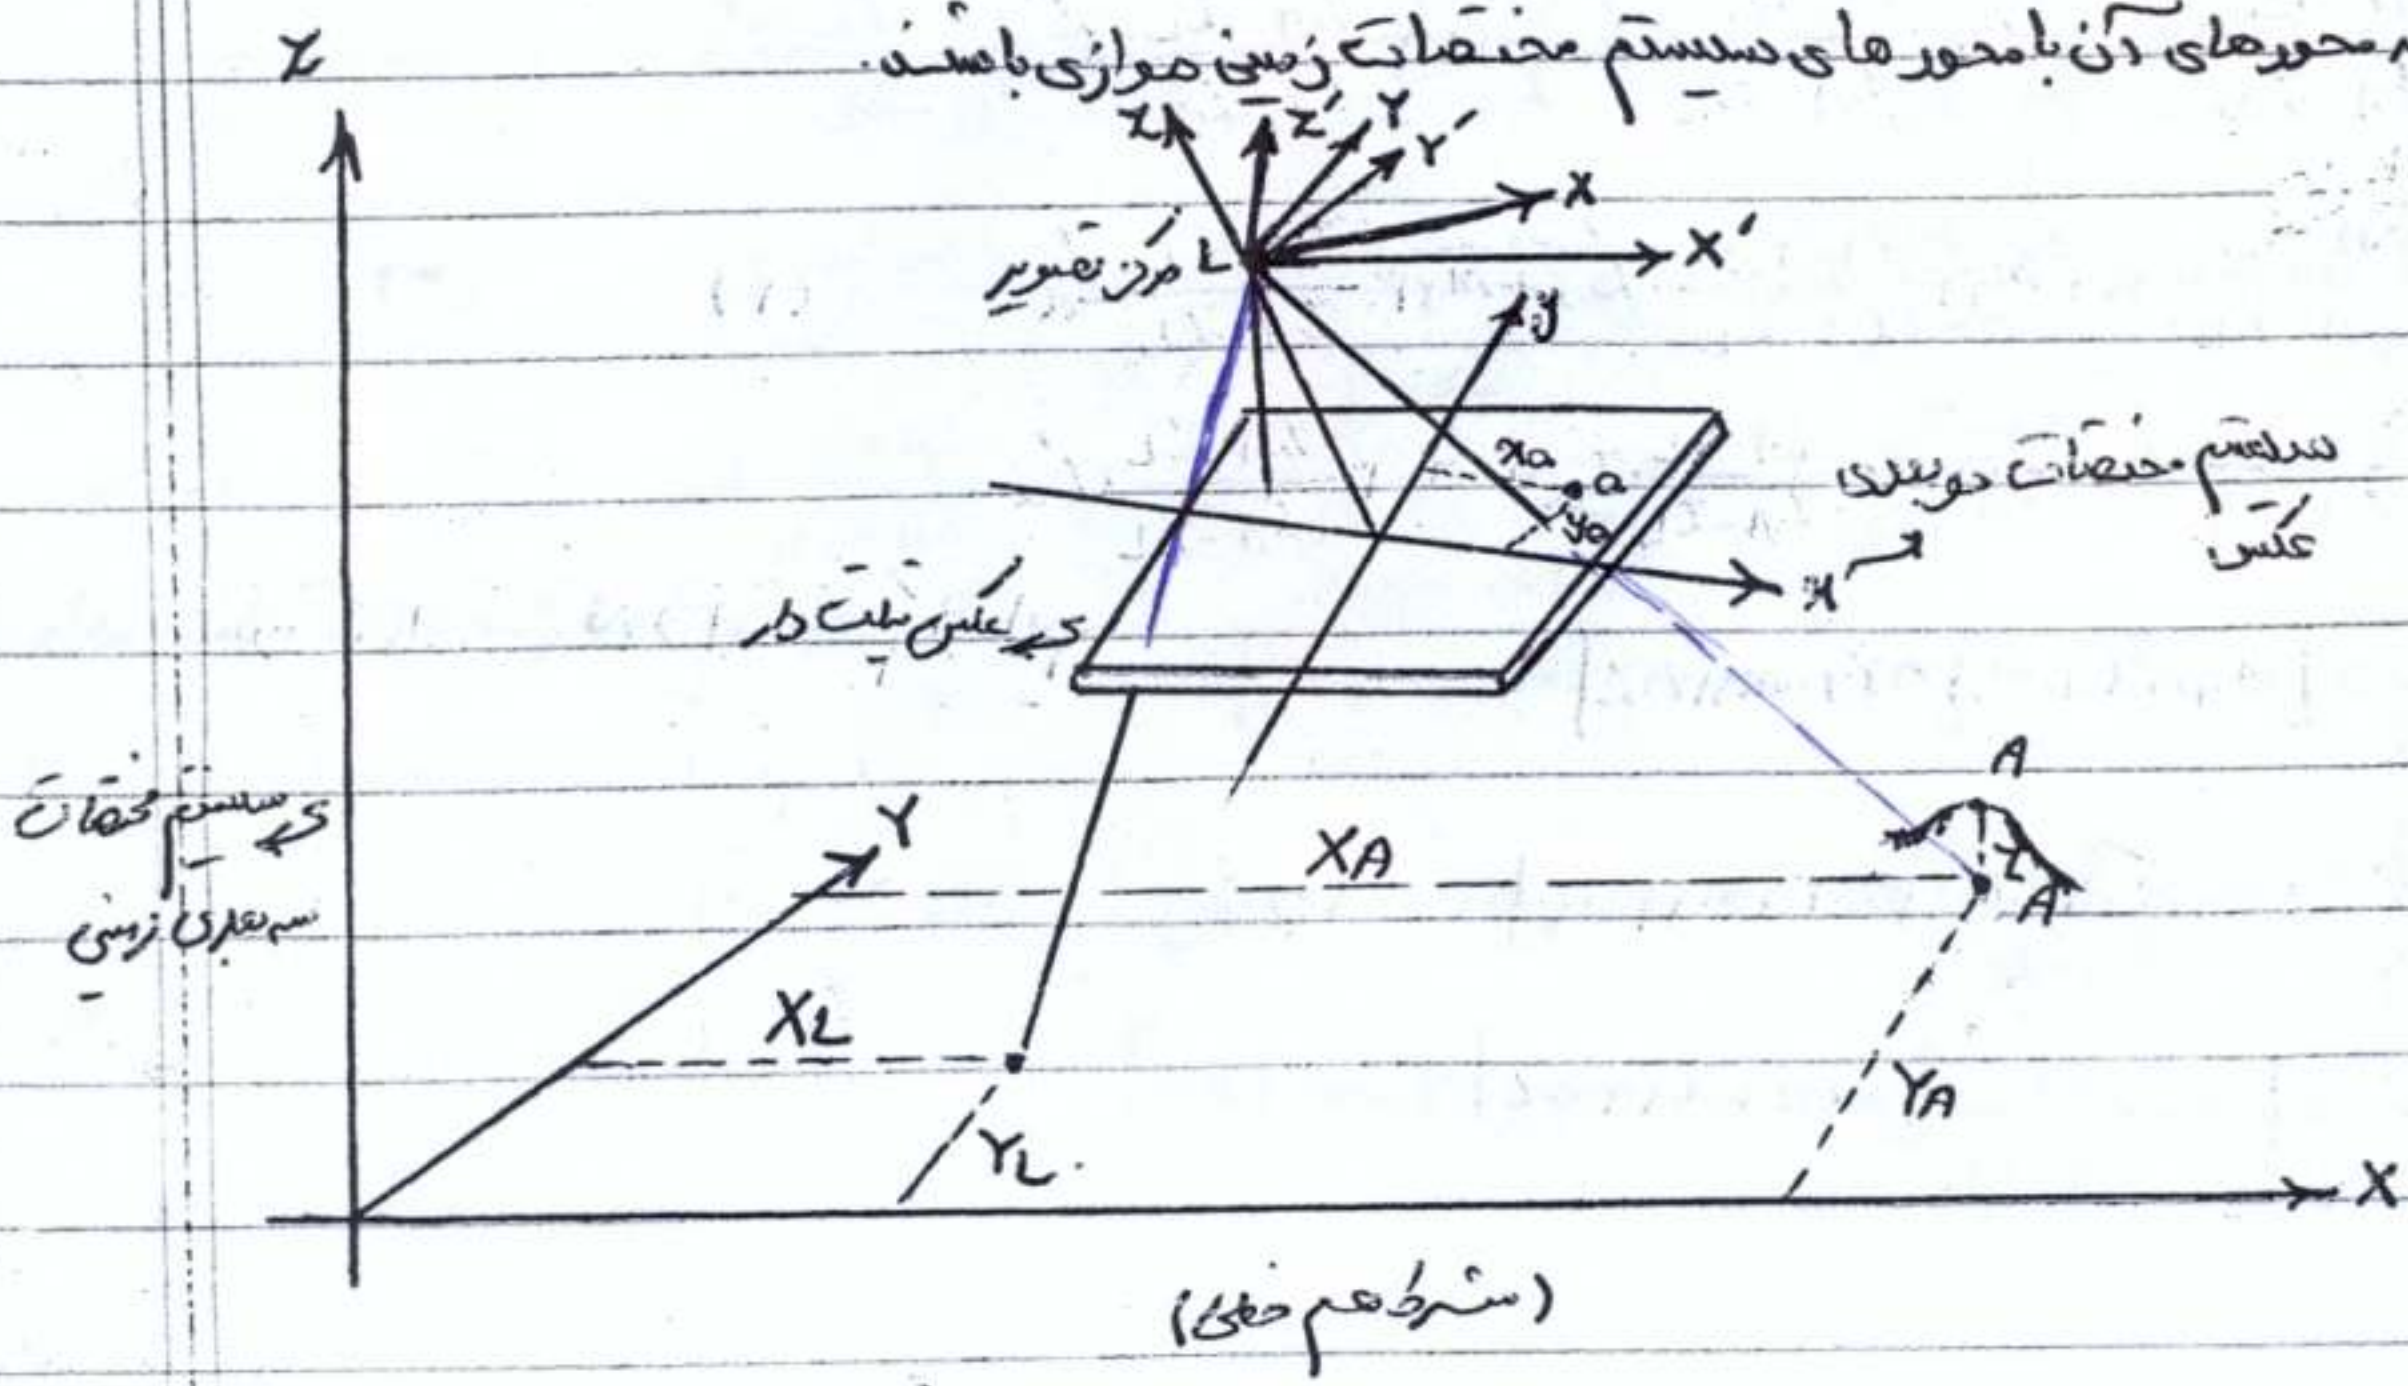 محورهای آن با محورهای سیستم مختصات زمینی موازی باشند.
Z
Z Z' Y
Y'
X
X'
مرکز تصویر L
y
xa a
ya
سیستم مختصات دو بعدی
عکس
x
عکس تیلت دار
A
سیستم مختصات
سه بعدی زمینی
Y
XA
Z
A
XL
YL
YA
X
(شرط هم خطی)